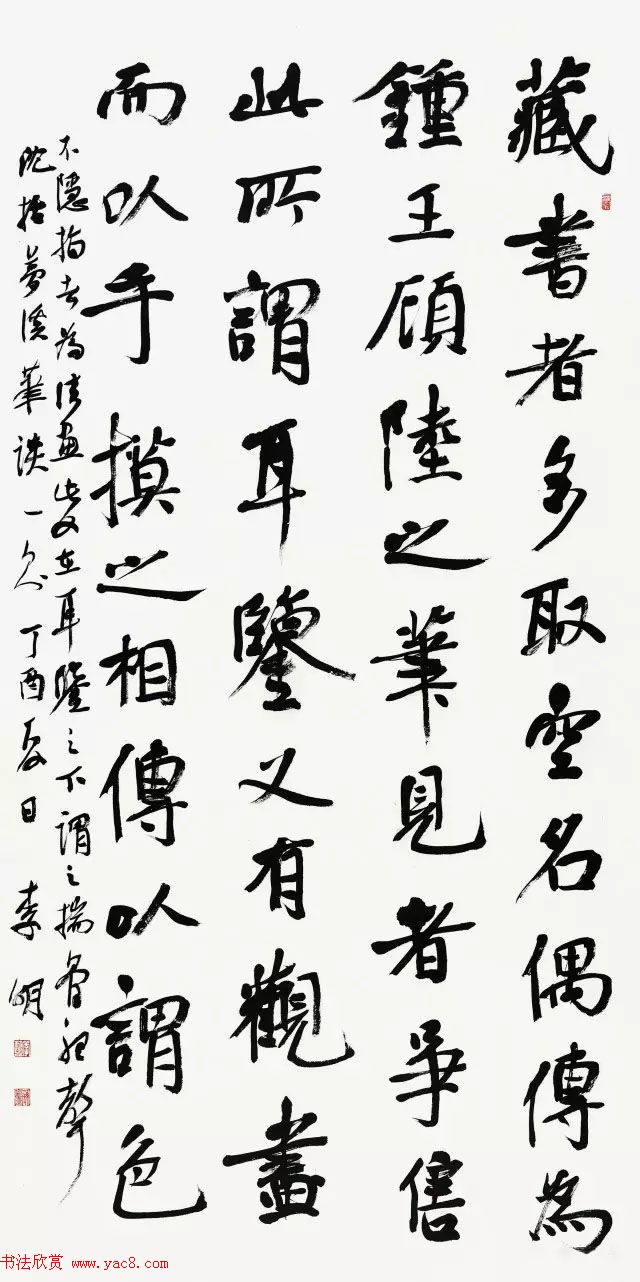 藏書者多取空名偶傳為
鍾王顧陸之筆見者爭售
此所謂耳鑒又有觀畫
而以手摸之相傳以謂色
不隱指者為佳畫此又在耳鑒之下謂之揣骨聽聲
沈括夢溪筆談一則丁酉夏日李明
书法欣赏 www.yac8.com